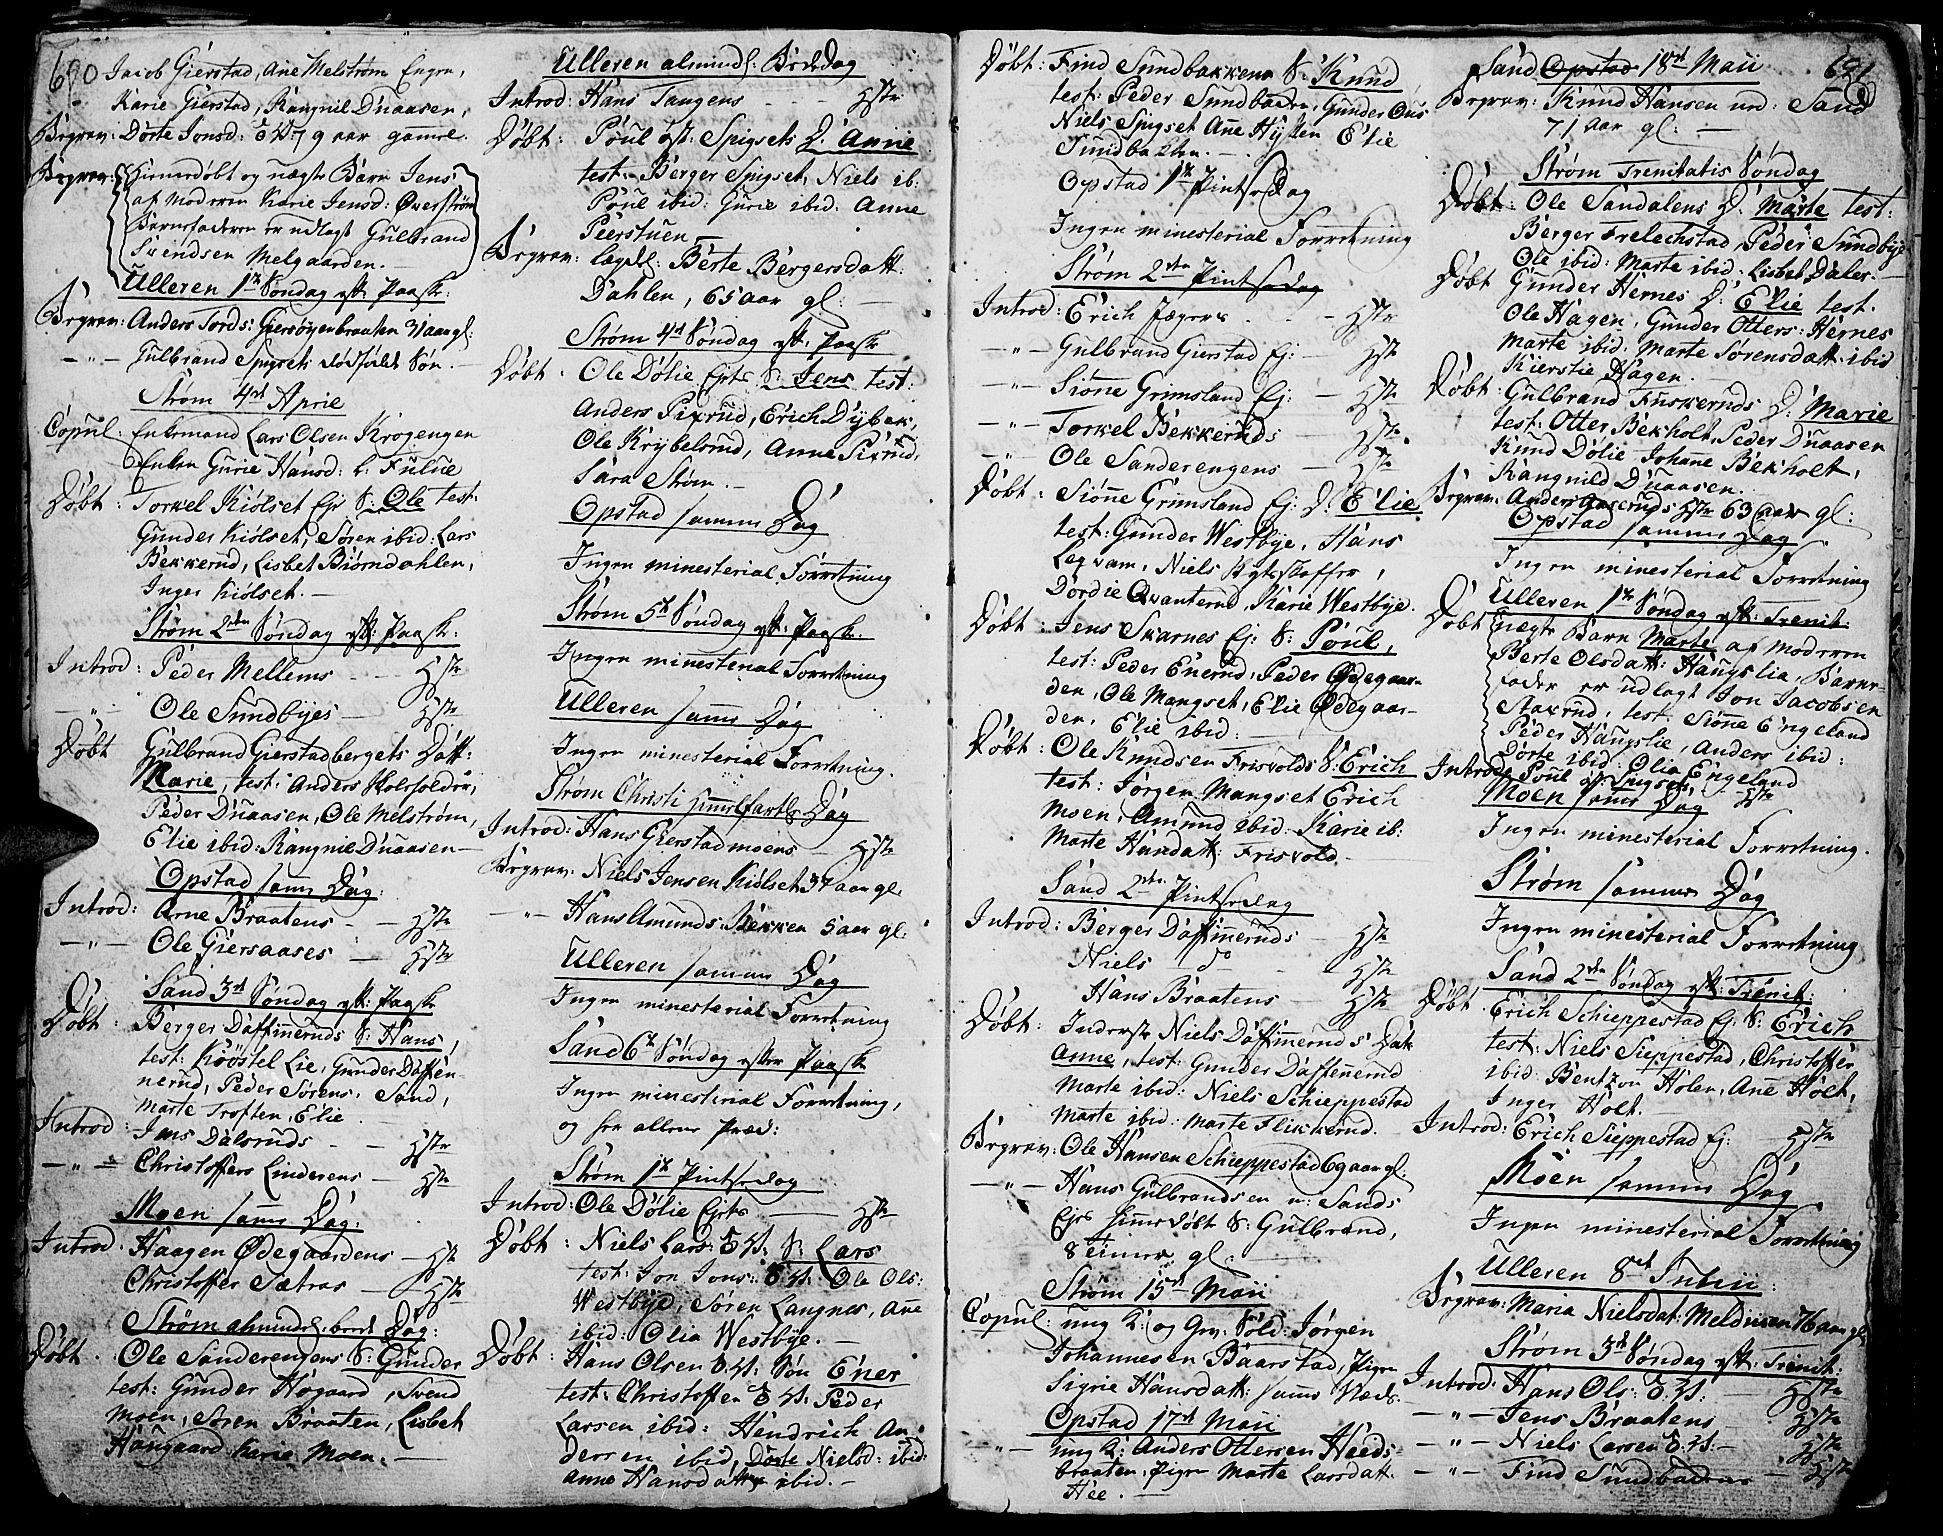 690
Jacob Gierstad, Ane Melstrøm Engen,
Karie Gierstad, Rangnil Dnaasen,
Begrav: Dorte Jonsd: 79 aar gamel.
Begrav: Hiemedøbt og uægte Barn Jens
af moderen Karie Jensd: Øverstrøm
Barnefaderen er udlagt Gulbrand
Svendsen Melgaarden.
Ulleren 1te Søndag eft: Paaske:
Begrav: Anders Tords: Giersøyenbraaten 31 aar gl:
-"- Gulbrand Spigsets dødfødt Søn.
Strøm 4de April
Copul: Enkemand Lars Olsen Krogengen
Enken Gurie Hansd:
Døbt: Torkel Kiølset Ejr S: Ole test:
Gunder Kiølset, Søren ibid: Lars
Bekkerud, Lisbet Biørndahlen,
Inger Kiølset.
Strøm 2den Søndag eft: Paaske:
Introd: Peder Mellems - Hstr
-"- Ole Sundbyes - Hstr
Døbt Gulbrand Gierstadbergets Datt:
Marie, test: Anders
Peder Dnaasen, Ole Melstrøm,
Elie ibid: Rangnil Dnaasen
Opstad samme Dag:
Introd: Arne Braatens - Hstr
-"- Ole Giersaases - Hstr
Sand 3de Søndag eft: Paaske
Døbt: Berger Daffinneruds S: Hans,
test: Lie, Gunder Daffin-
nerud, Peder Sørens. Sand,
Marte Troften, Elie
Introd: Jens Dalsruds - Hstr
-"- Christoffers Linderens - Hstr
Moen samme Dag:
Introd: Haagen Ødegaardens - Hstr
Christoffer Sætras - Hstr
Strøm almindel: Dag:
Døbt: Ole Sanderengens S: Gunder
test: Gunder Høgaard, Svend
Moen, Søren Braaten, Lisbet
Haugaard Karie Moen.
Ulleren almindel: Bededag
Introd: Hans Tangens - Hstr
Døbt: Poul Spigsets D: Anne
test: Berger Spigset, Niels ib:
Poul ibid: Gurie ibid: Anne
Peerstuen
Begrav: Berte Bergersdatt:
Dahlen, 65 aar gl:
Strøm 4de Søndag eft: Paaske
Døbt: Ole Dølie Ejers S: Jens test:
Anders Pixrud, Erich Dybek,
Ole Krybelsrud, Anne Pixrud,
Sara Strøm.
Opstad samme Dag
Ingen ministerial Forretning
Strøm 5te Søndag eft: Paaske:
Ingen ministerial Forretning
Ulleren samme Dag
Ingen ministerial Forretning.
Strøm Christi Himmelfarts Dag
Introd: Hans Gierstadmoens - Hstr
Begrav: Niels Jensen Kiølset 37 aar gl:
-"- Hans Amunds: Bekken 5 aar gl:
Ulleren samme Dag
Ingen ministerial Forretning
Sand 6te Søndag efter Paaske
Ingen ministerial Forretning,
og her allene Præd:
Strøm 1te Pintsedag
Introd: Ole Dølie Ejrs - Hstr
Døbt: Niels Lars: S: Lars
test: Jon Jons: Ole Ols:
Westbye, Søren Langnes, Ane
ibid: Olia Westbye.
Døbt: Hans Olsen Søn Ener
test: Christoffen Peder
Larsen ibid: Hendrich An-
dersen ibid, Dorte Nielsd: ibid:
Anne Hansdatter ibid.
Døbt: Find Sundbakkens S: Knud
test: Peder Sundbakken, Gunder
Niels Spigset Ane Elie
Sundbakken.
Opstad 1te Pintsedag
Ingen ministerial Forretning
Strøm 2den Pintsedag
Introd: Erich Jægers - Hstr
-"- Gulbrand Gierstad Ej: - Hstr
-"- Siønne Grimsland Ej: - Hstr
-"- Torkel Bekkeruds - Hstr
-"- Ole Sanderengens - Hstr
Døbt: Siønne Grimsland Ej: D: Elie
test: Gunder Westbye, Hans
Leqvam, Niels
Dordie Qvanterud, Karie Westbye.
Døbt: Jens Skarnes Ej: S: Poul,
test: Peder Enerud, Peder Ødegaar-
den, Ole Mangset, Elie Ødegaar-
den, Elie ibid:
Døbt: Ole Knudsen Frisvolds S: Erich
test: Jørgen Mangset Erich
Moen, Amund ibid: Karie ib:
Marte Hansdatt: Frisvold.
Sand 2den Pintsedag
Introd: Berger Daffinneruds - Hstr
Niels do - Hstr
Hans Braatens Hstr
Døbt: Inderst Niels Daffinneruds Datt:
Anne, test: Gunder Daffinnerud
Marte ibid: Niels Schieppestad
Marte ibid: Marte Flikkerud.
Begrav: Ole Hansen Schieppestad 69 aar gl:
-"- Hans Gulbrandsen n: Sands
Ejrs hiemedøbt S: Gulbrand,
8 timer gl:
Strøm 15de Maii
Copul: ung K: og Gev. Sold: Jørgen
Johannesen Baarstad, Pigen
Sigrie Hansdatt: samme
Opstad 17de Maii
-"- ung K: Anders Ottersen Heeds-
braaten, Pigen Marte Larsdatt:
Hee.
Sand Opstad 18de Maii
691
Begrav: Knud Hansen ned: Sand
71 aar gl:
Strøm Trenitatis Søndag
Døbt: Ole Sandalens D: Marte test:
Berger Frelechstad, Peder Sundbye
Ole ibid: Marte ibid: Lisbet Dalen.
Døbt Gunder Hernes D: Elie test.
Ole Hagen, Gunder Otters: Hernes
Marte ibid: Marte Sørensdatt: ibid
Kierstie Hagen.
Døbt: Gulbrand Fuskeruds D: Marie
test: Otter Bekholt, Peder Dnaasen
Knud Dølie Johane Bekholt,
Rangnild Dnaasen.
Begrav: Anders Hstr 63 aar gl:
Opstad samme Dag
Ingen ministerial Forretning
Ulleren 1te Søndag eft: Trenit:
Døbt uægte Barn Marte af moderen
Berte Olsdatt: Haugslia, Barne-
fader er udlagt Jon Jacobsen
Staxrud, test: Siønne Engeland
Peder Haugslie, Anders ibid:
Dorte ibid: Olia Engeland
Introd: Poul Spigsets, Hstr
Moen samme Dag
Ingen ministerial Forretning.
Strøm samme Dag
Ingen ministerial Forretning
Sand 2den Søndag eft: Trenit:
Døbt: Erich Schieppestad Ej: S: Erich
test: Niels Sieppestad, Christoffer
ibid: Bentzon Holen, Ane Holt,
Inger Holt.
Introd: Erich Sieppestad Ej: Hstr
Moen samme Dag
Ingen ministerial Forretning
Ulleren 8de Junii
Begrav: Maria Nielsdat: 76 aar gl:
Strøm 3de Søndag eft: Trenit:
Introd: Hans Ols: Hstr
-"- Jens Braatens Hstr
-"- Niels Larsen Hstr
-"- Find Sundbakkens - Hstr